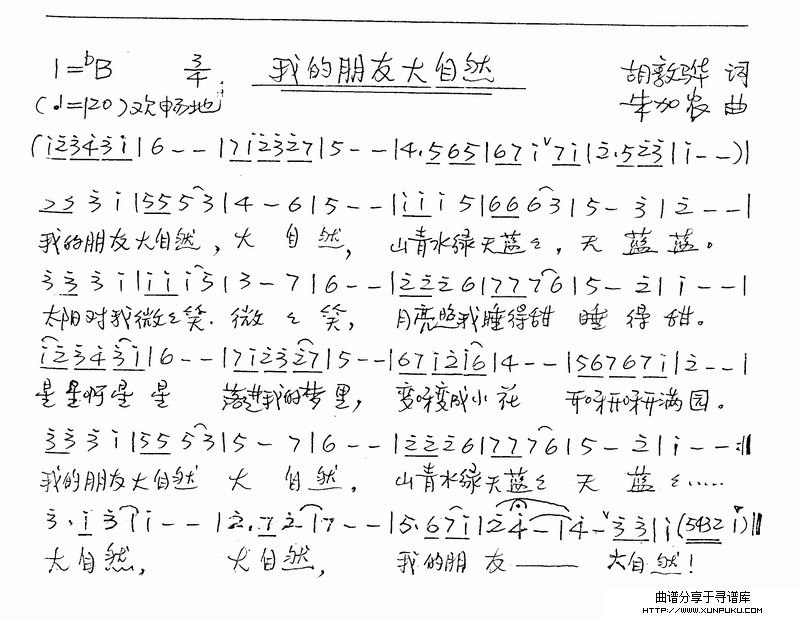 1=ᵇB 3/4 我的朋友大自然 胡敦骅 词
(♩=120)欢畅地 朱加农 曲
(i̇2̇3̇4̇3̇i̇|6--|7i̇2̇3̇2̇7|5--|4.565|67i̇ᵛ7i̇|2̇.52̇3̇|i̇--)|
3̇3̇3̇i̇|5̇5̇5̇3̇|4-6|5--|i̇i̇i̇5|6663|5-3̇|2̇--|
我的朋友大自然,大自然, 山青水绿天蓝〻,天蓝蓝。
3̇3̇3̇i̇|i̇i̇i̇5|3-7|6--|2̇2̇2̇6|7776|5-2̇|i̇--|
太阳对我微〻笑.微〻笑, 月亮照我睡得甜 睡得甜。
i̇2̇3̇4̇3̇i̇|6--|7i̇2̇3̇2̇7|5--|67i̇2̇i̇6|4--|56767i̇|2̇--|
星星啊星星 落进我的梦里, 变呀变成小花 开呀开呀开满园。
3̇3̇3̇i̇|5̇5̇5̇3̇|5-7|6--|2̇2̇2̇6|7776|5-2̇|i̇--:‖
我的朋友大自然 大自然. 山青水绿天蓝〻 天蓝〻……
3̇.i̇3̇|i̇--|2̇.72̇|7--|5.67i̇|2̇4̇-|4̇-ᵛ3̇3̇|i̇(5432 i̇)‖
大自然, 大自然, 我的朋友—— 大自然!
曲谱分享于寻谱库
HTTP://WWW.XUNPUKU.COM